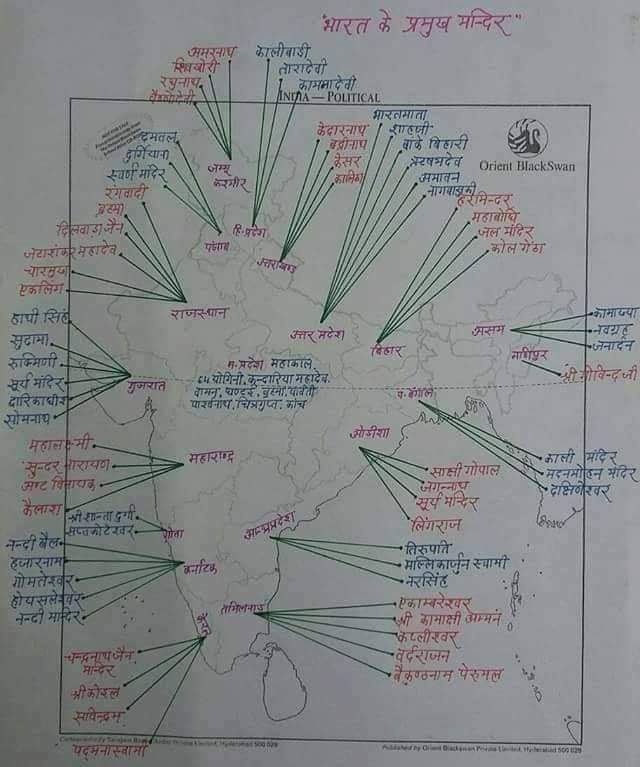 "भारत के प्रमुख मन्दिर"
अमरनाथ
शिवखोरी
रघुनाथ
वैष्णोदेवी
कालीबाडी
तारादेवी
कामनादेवी
INDIA — POLITICAL
Orient BlackSwan
दुर्गियाना
स्वर्ण मंदिर
जम्मू
कश्मीर
हि.प्रदेश
पंजाब
केदारनाथ
बद्रीनाथ
केसर
कालिका
उत्तराखण्ड
भारतमाता
शाहजी
बांके बिहारी
ऋषभदेव
नागवासुकी
उत्तर प्रदेश
हरमिन्दर
महाबोधि
जल मंदिर
बिहार
रंगवादी
ब्रह्मा
दिलवाडा जैन
जटाशंकर महादेव
चारभुजा
एकलिंग
राजस्थान
कामाख्या
नवग्रह
जनार्दन
असम
मणिपुर
श्री गोविन्द जी
हाथी सिंह
सुदामा
रुक्मिणी
सूर्य मंदिर
द्वारिकाधीश
सोमनाथ
गुजरात
म. प्रदेश महाकाल
64 योगिनी, कन्दारिया महादेव,
वामन, चण्डई, ब्रह्मा, पार्वती
पारवनाथ, चित्रगुप्त, कांच
प. बंगाल
काली मंदिर
मदनमोहन मंदिर
दक्षिणेश्वर
ओडीशा
साक्षी गोपाल
जगन्नाथ
सूर्य मन्दिर
लिंगराज
महालक्ष्मी
सुन्दर नारायण
अष्ट विनायक
कैलाश
महाराष्ट्र
श्री शान्ता दुर्गा
सप्तकोटेश्वर
गोवा
आन्ध्रप्रदेश
तिरुपति
मल्लिकार्जुन स्वामी
नरसिंह
नन्दी बैल
हजारनाम
गोमतेश्वर
होयसलेश्वर
नन्दी मन्दिर
कर्नाटक
तमिलनाडु
एकाम्बरेश्वर
श्री कामाक्षी अम्मन
कप्लीश्वर
वर्दराजन
वैकुण्ठनाम पेरुमल
केरल
चन्द्रनाथ जैन
मन्दिर
श्रीकोइल
सविन्द्रम
पद्मनास्वामी
Published by Orient Blackswan Private Limited, Hyderabad 500 029